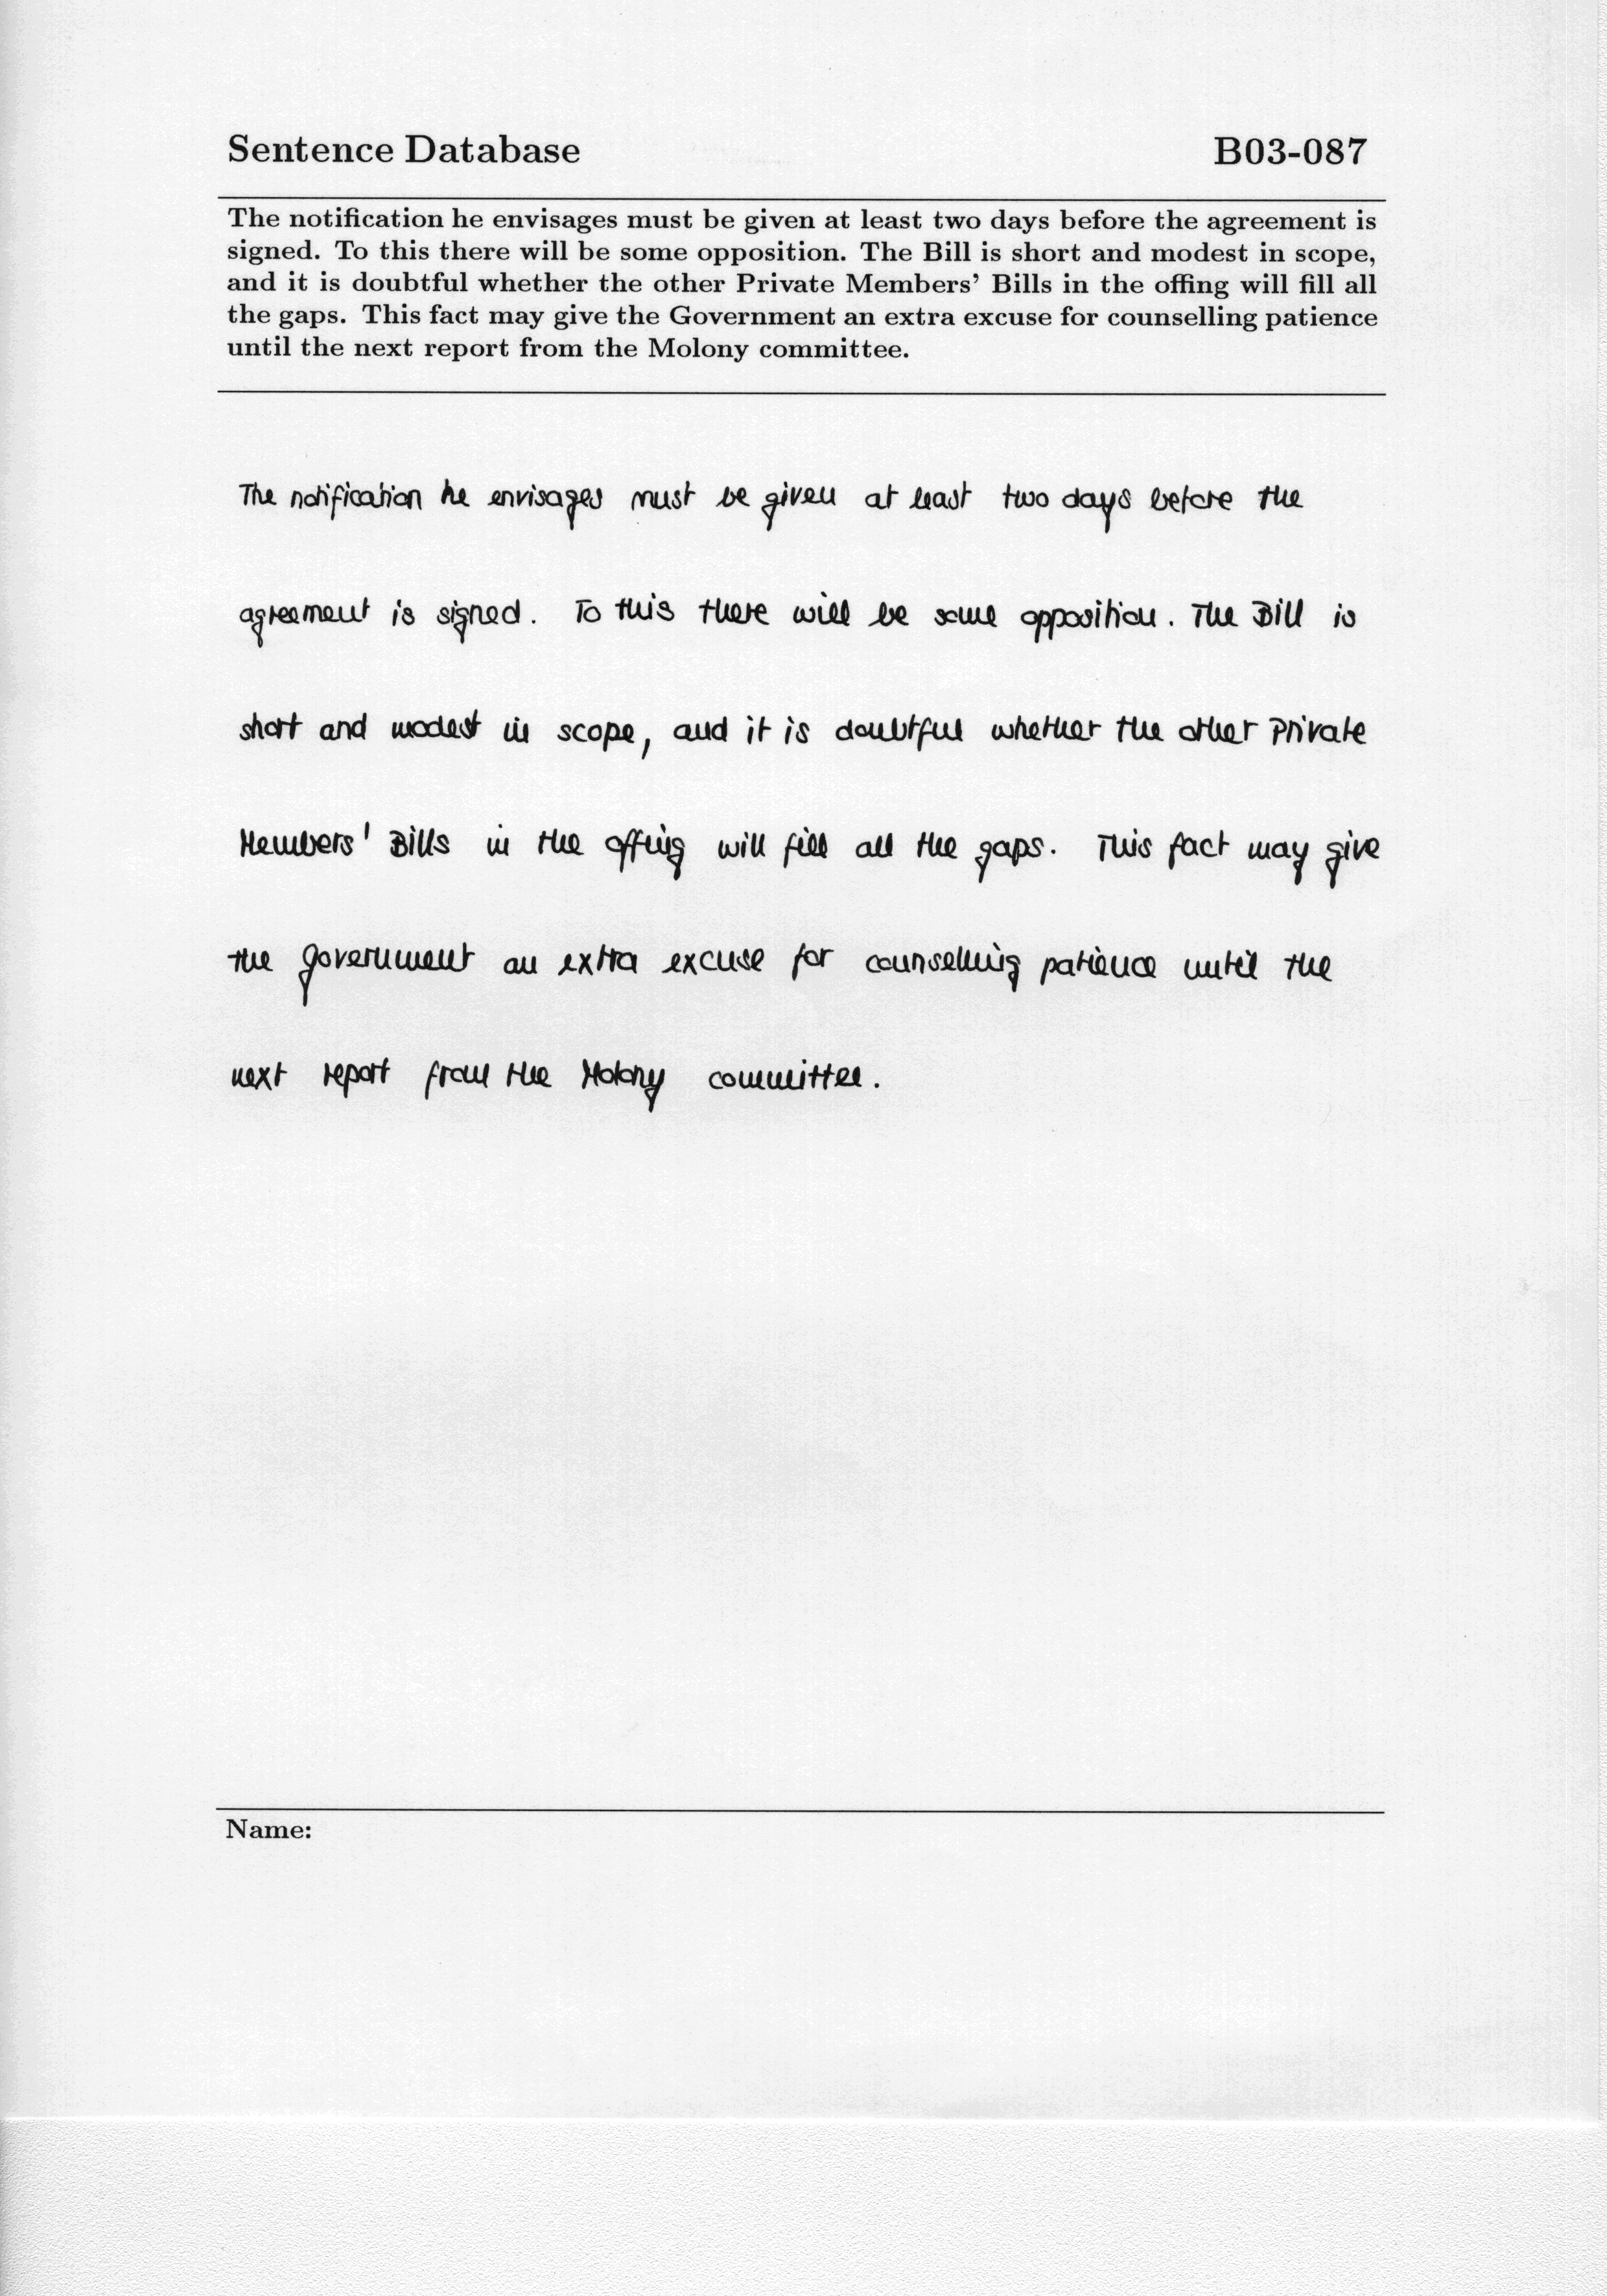 Sentence Database B03-087
The notification he envisages must be given at least two days before the agreement is
signed. To this there will be some opposition. The Bill is short and modest in scope,
and it is doubtful whether the other Private Members' Bills in the offing will fill all
the gaps. This fact may give the Government an extra excuse for counselling patience
until the next report from the Molony committee.
The notification he envisages must be given at least two days before the
agreement is signed. To this there will be some opposition. The Bill is
short and modest in scope, and it is doubtful whether the other Private
Members' Bills in the offing will fill all the gaps. This fact may give
the government an extra excuse for counselling patience until the
next report from the Molony committee.
Name: